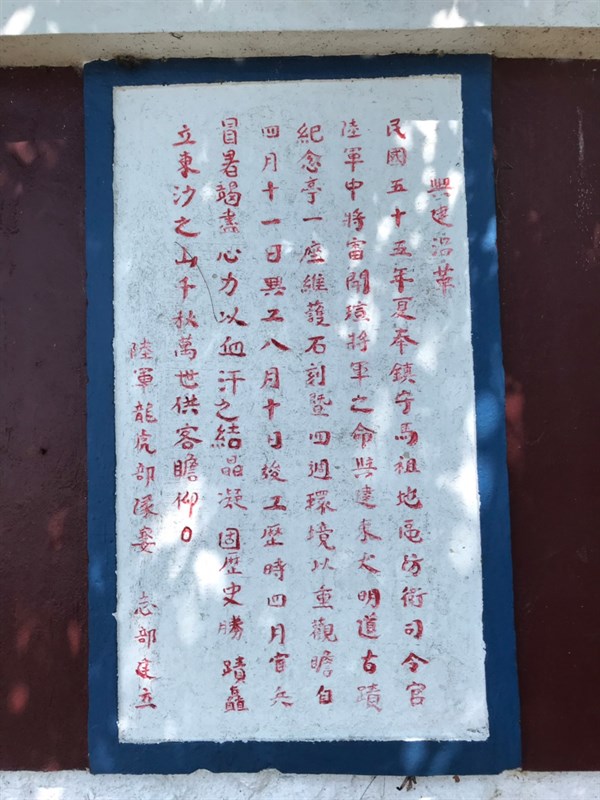 興建沿革
民國五十五年夏奉鎮守馬祖地區防衛司令官
陸軍中將雷開瑄將軍之命興建東犬明道古蹟
紀念亭一座維護石刻暨四週環境以重觀瞻自
四月十一日興工八月十日竣工歷時四月官兵
冒暑竭盡心力以血汗之結晶凝固歷史勝蹟矗
立東沙之山千秋萬世供客瞻仰。
陸軍龍虎部隊 部建立